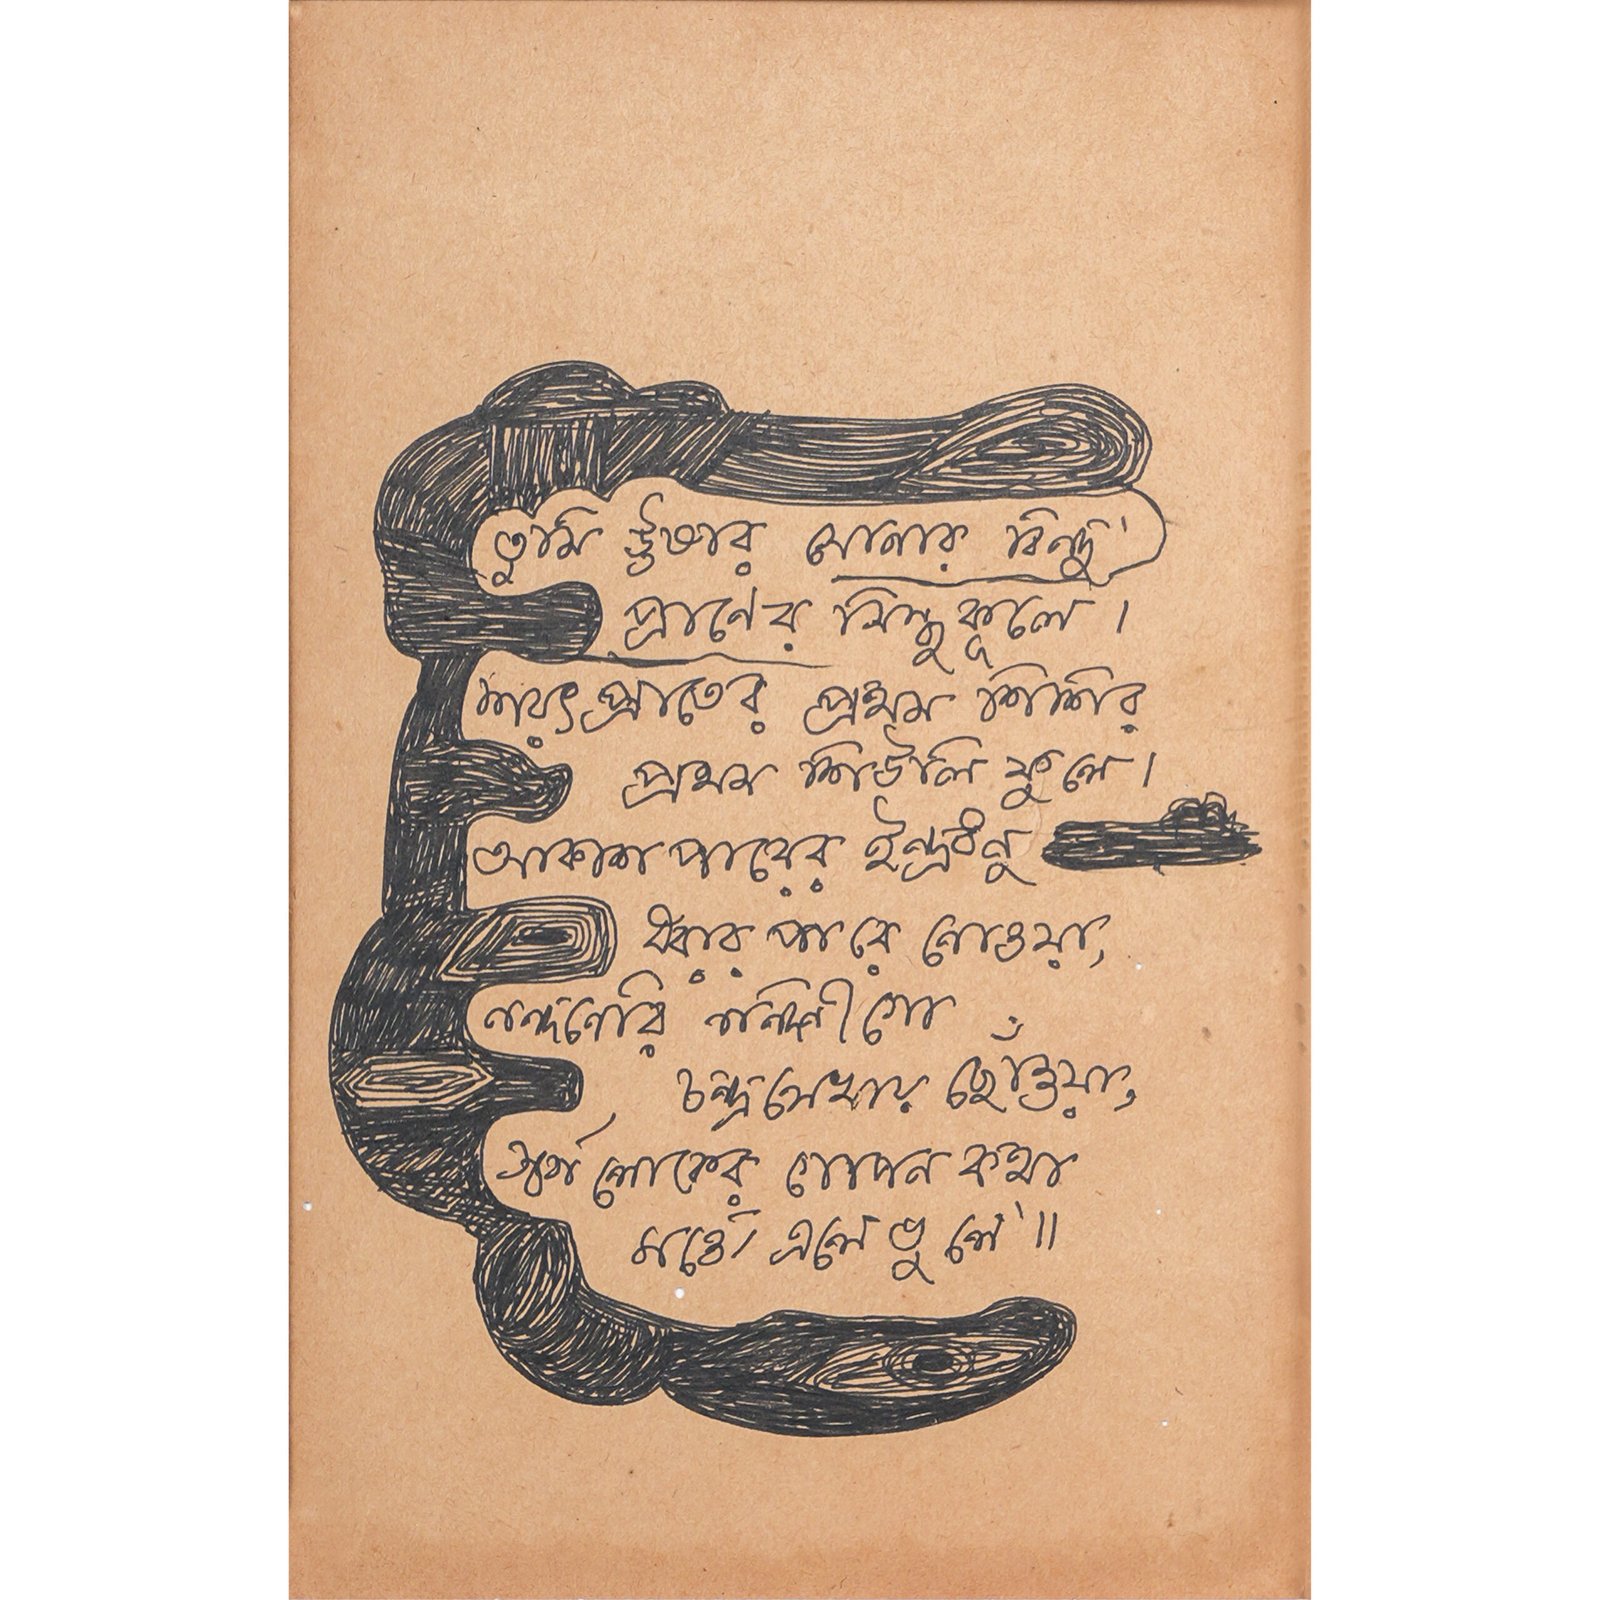 তুমি উষার সোনার বিন্দু
প্রাণের সিন্ধুকূলে।
শরৎ প্রাতের প্রথম শিশির
প্রথম শিউলি ফুলে।
আকাশ পারের ইন্দ্রধনু
ধরার পারে নোওয়া,
নন্দনেরি নন্দিনী গো
চন্দ্রলেখায় ছোঁওয়া,
স্বর্গ লোকের গোপন কথা
মর্ত্যে এলে ভুলে॥